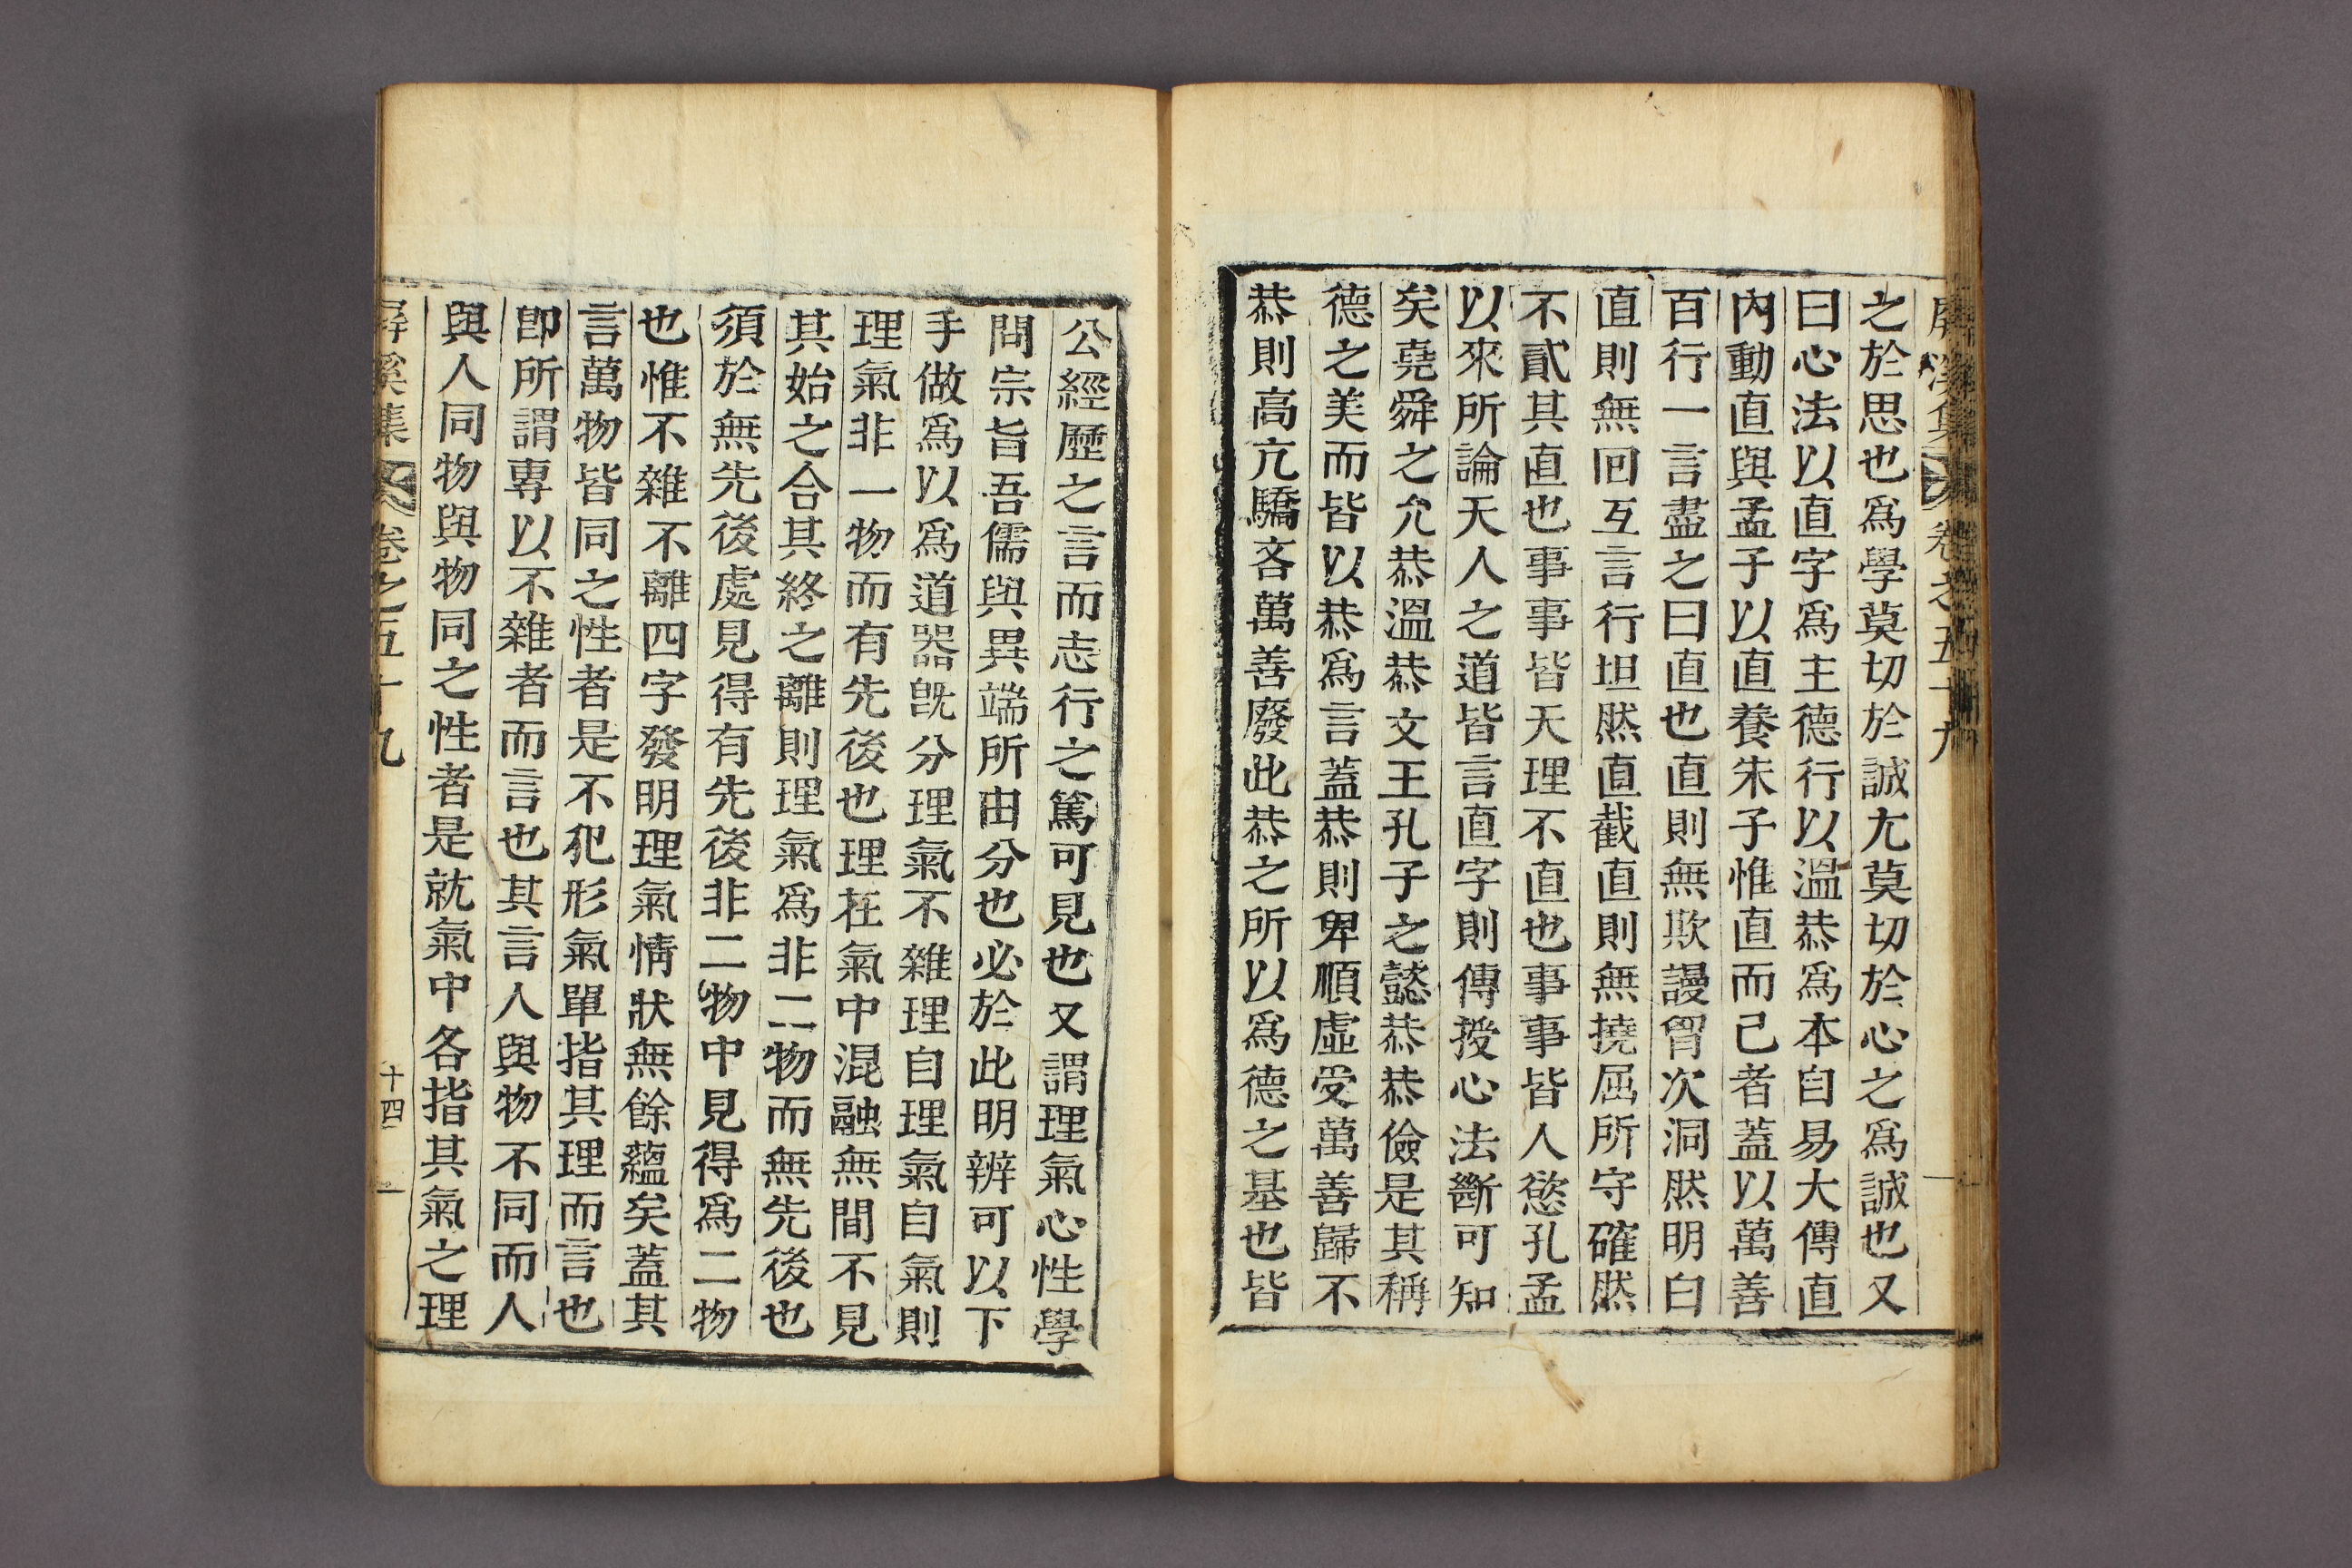 屛溪集 卷之五十九
之於思也爲學莫切於誠尤莫切於心之爲誠也又
曰心法以直字爲主德行以溫恭爲本自易大傳直
內動直與孟子以直養朱子惟直而已者蓋以萬善
百行一言盡之曰直也直則無欺謾胷次洞然明白
直則無回互言行坦然直截直則無撓屈所守確然
不貳其直也事事皆天理不直也事事皆人慾孔孟
以來所論天人之道皆言直字則傳授心法斷可知
矣堯舜之允恭溫恭文王孔子之懿恭恭儉是其稱
德之美而皆以恭爲言蓋恭則卑順虛受萬善歸不
恭則高亢驕吝萬善廢此恭之所以爲德之基也皆
公經歷之言而志行之篤可見也又謂理氣心性學
問宗旨吾儒與異端所由分也必於此明辨可以下
手做爲以爲道器旣分理氣不雜理自理氣自氣則
理氣非一物而有先後也理在氣中混融無間不見
其始之合其終之離則理氣爲非二物而無先後也
須於無先後處見得有先後非二物中見得爲二物
也惟不雜不離四字發明理氣情狀無餘蘊矣蓋其
言萬物皆同之性者是不犯形氣單指其理而言也
卽所謂專以不雜者而言也其言人與物不同而人
與人同物與物同之性者是就氣中各指其氣之理
屛溪集 卷之五十九 十四